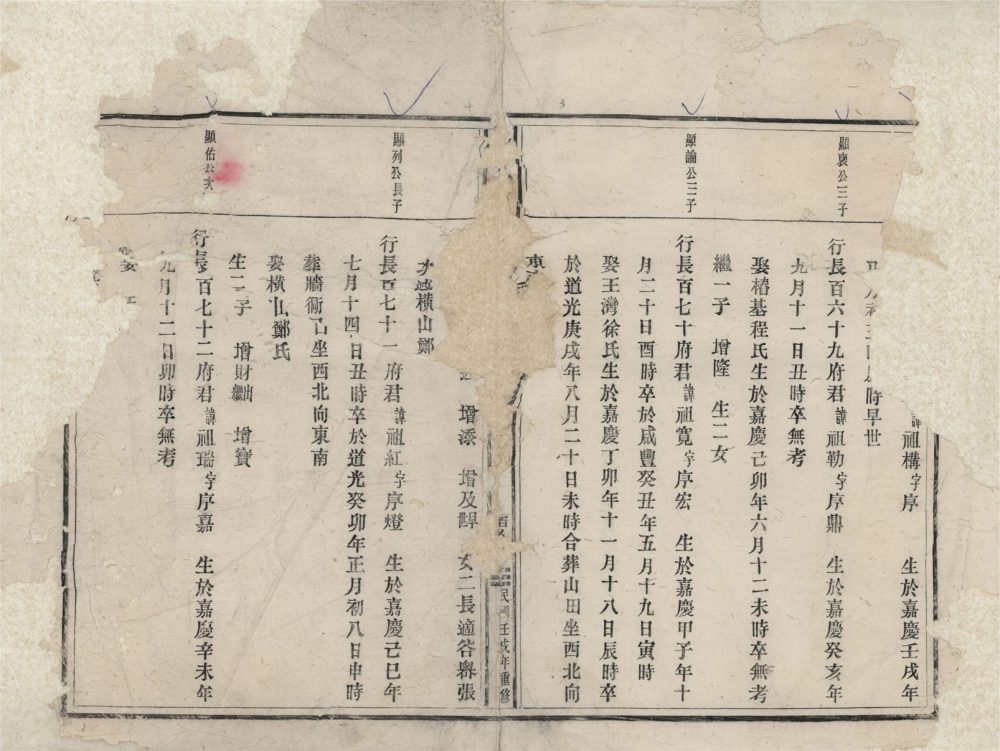 顯裒公三子
顯論公三子
諱祖構字序 生於嘉慶壬戌年
時早世
行長百六十九府君諱祖勒字序鼎 生於嘉慶癸亥年
九月十一日丑時卒無考
娶椿基程氏生於嘉慶己卯年六月十二未時卒無考
繼一子 增隆 生二女
行長百七十府君諱祖寬字序宏 生於嘉慶甲子年十
月二十日酉時卒於咸豐癸丑年五月十九日寅時
娶王灣徐氏生於嘉慶丁卯年十一月十八日辰時卒
於道光庚戌年八月二十日未時合葬山田坐西北向
東
民國壬戌年重修
顯列公長子
顯佑公次
增添 增及 女二長適谷礐張
次適橫山鄭
行長百七十一府君諱祖紅字序燈 生於嘉慶己巳年
七月十四日丑時卒於道光癸卯年正月初八日申時
葬牆衕坐西北向東南
娶橫山鄭氏
生二子 增財繼出 增寶
行長百七十二府君諱祖瑞字序嘉 生於嘉慶辛未年
九月十二日卯時卒無考
娶